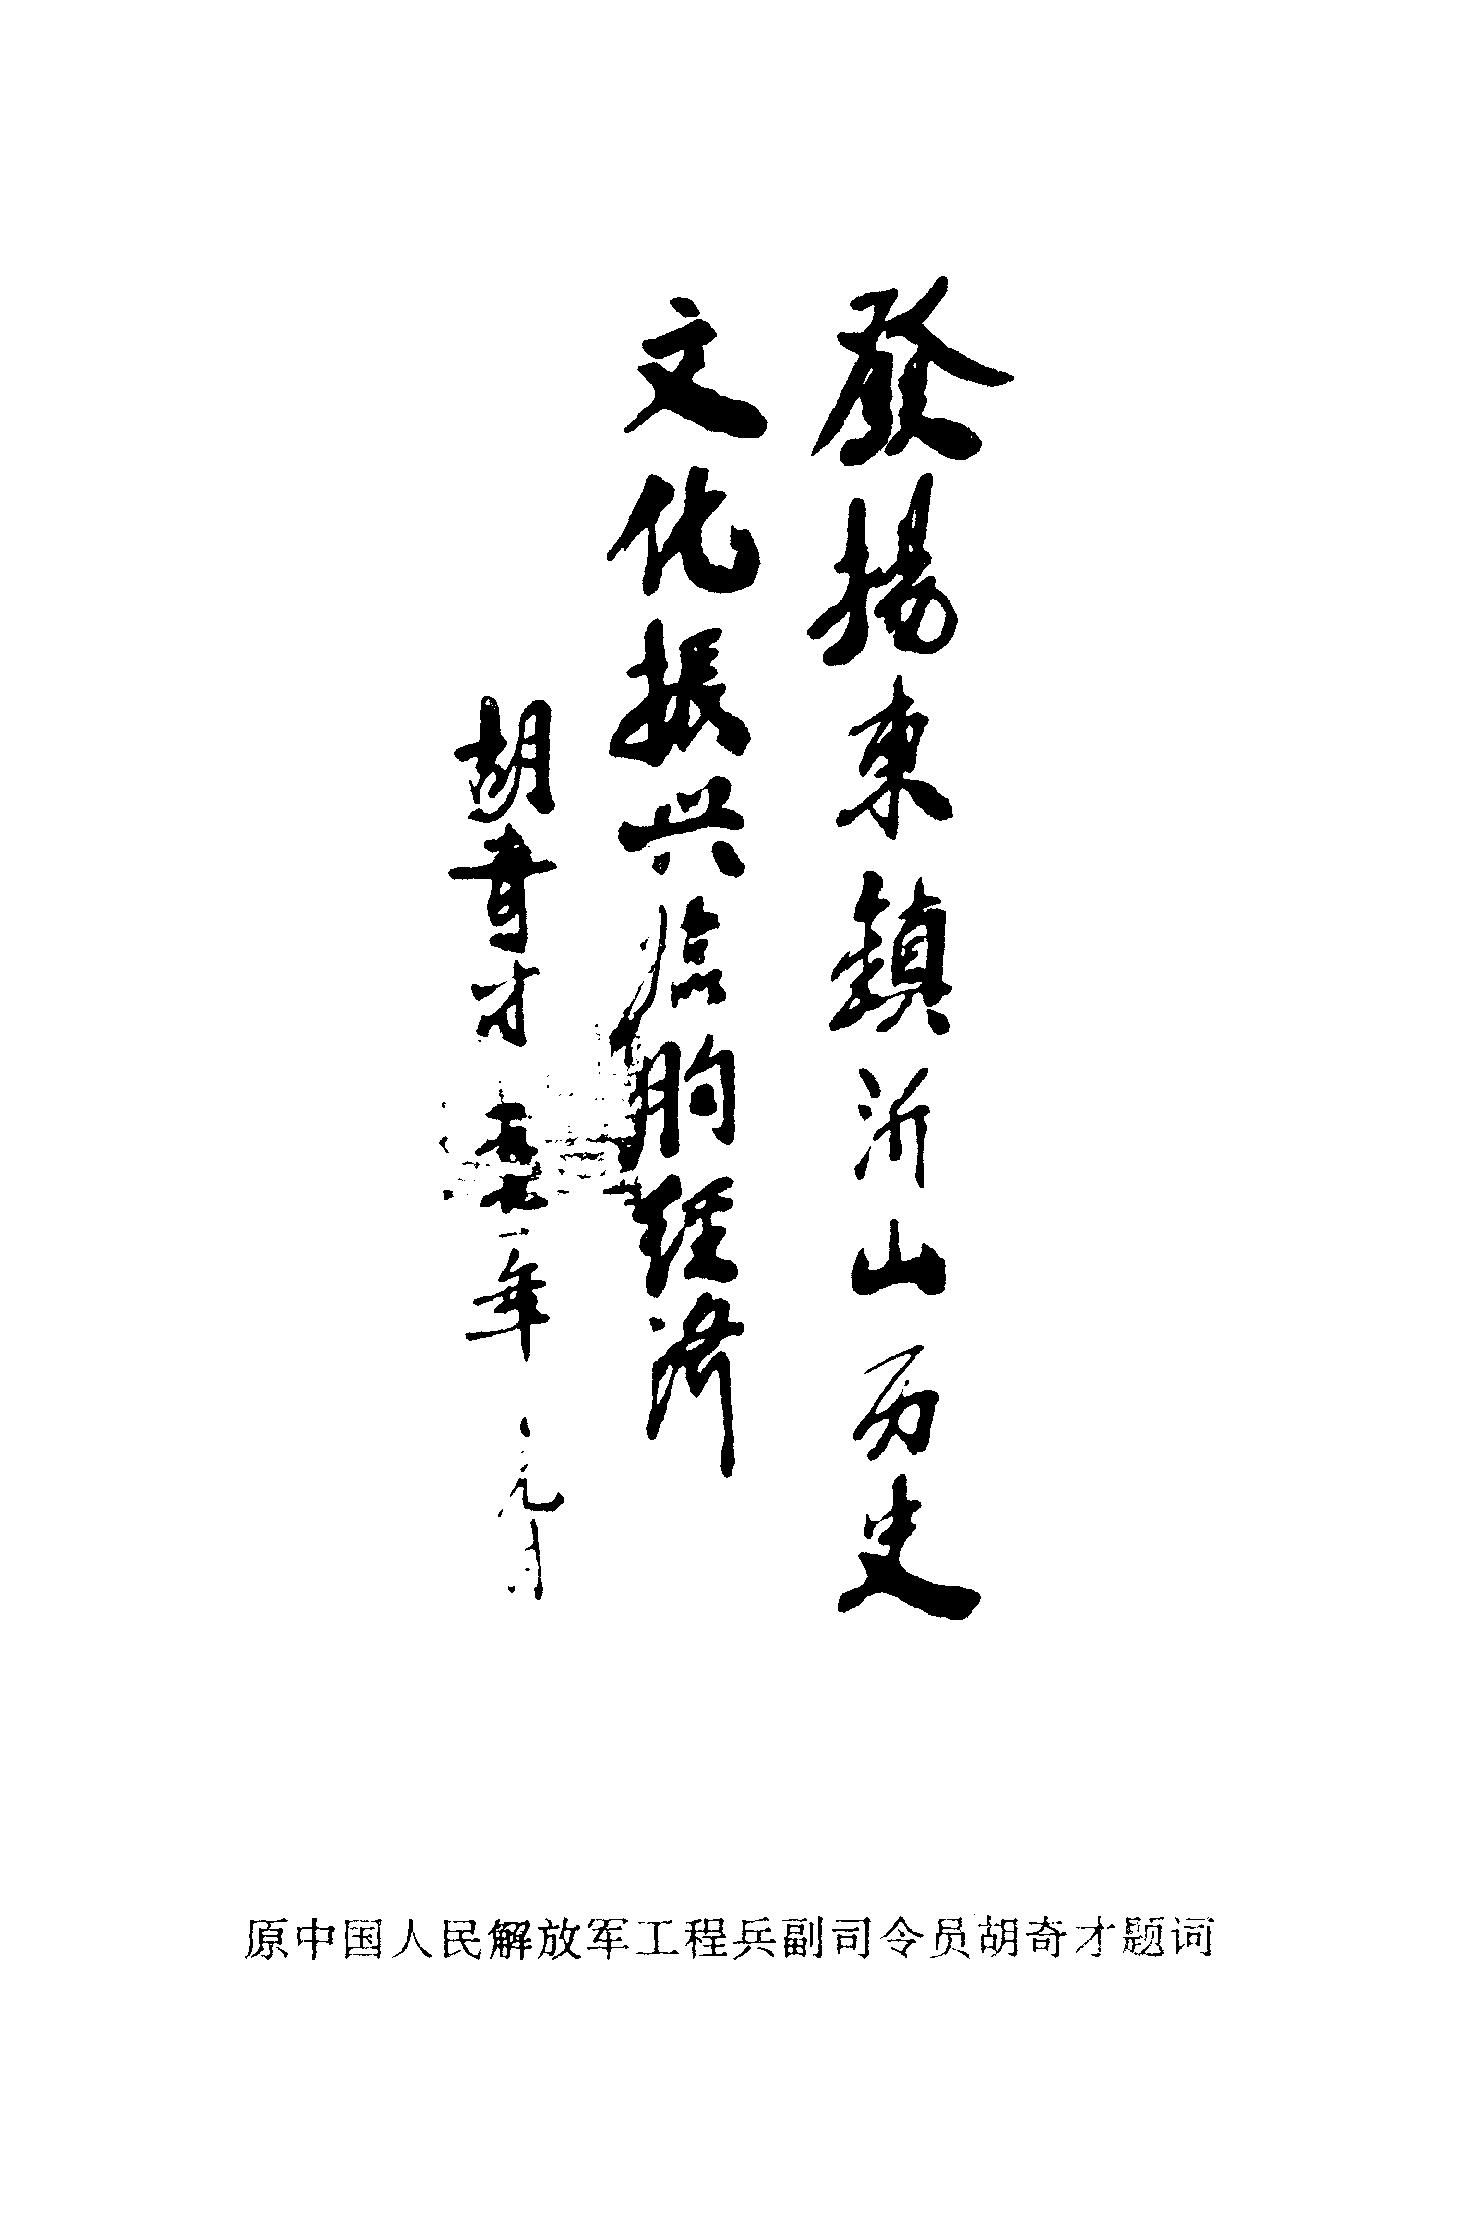 發揚東鎮沂山历史
文化振兴臨朐經济
胡奇才 一九九一年 元月
原中国人民解放军工程兵副司令员胡奇才题词